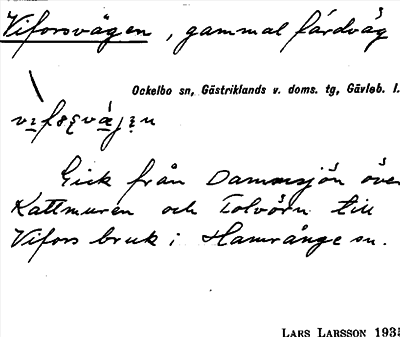 Viforsvägen, gammal färdväg
Ockelbo sn, Gästriklands v. doms. tg, Gävleb. l.
Gick från Dammsjön över
Kattmuren och Tolvörn till
Vifors bruk i Hamrånge sn.
LARS LARSSON 1935